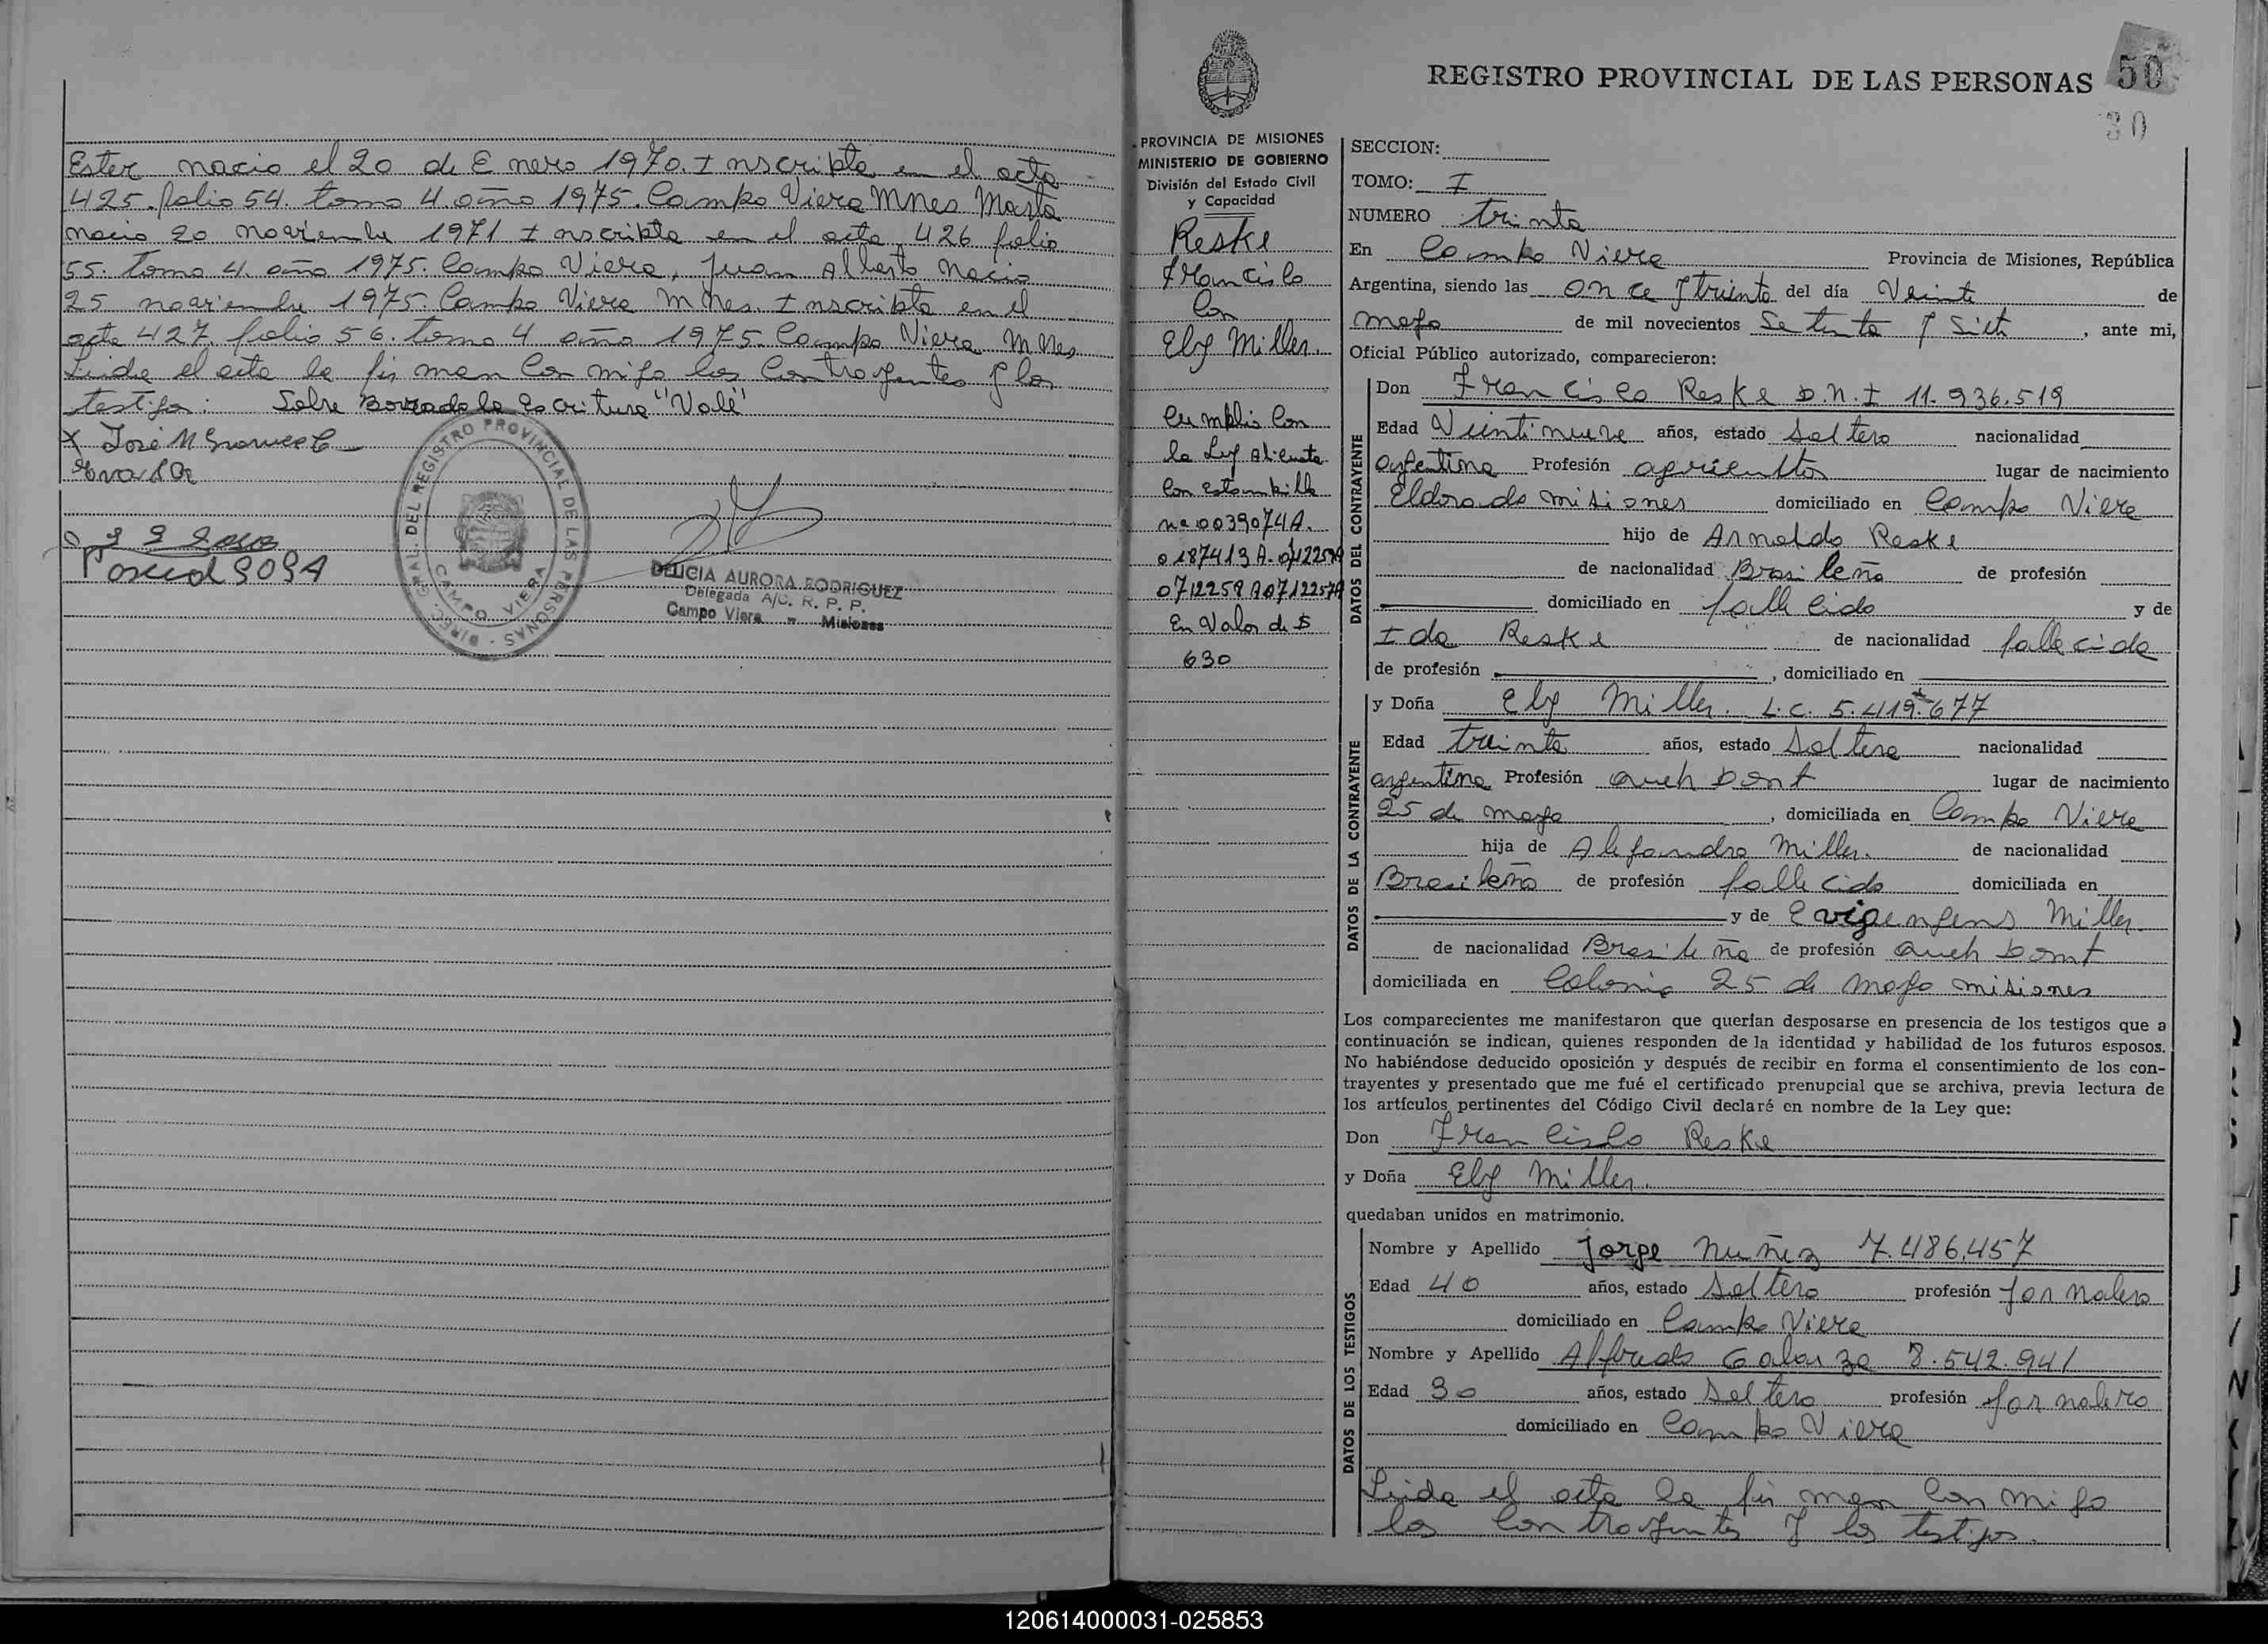 Ester nacio el 20 de Enero 1970. Inscripta en el acta
425. folio 54. tomo 4 año 1975. Campo Viera Mnes Marta
nacio 20 noviembre 1971 Inscripta en el acta 426 folio
55. tomo 4. año 1975. Campo Viera, Juan Alberto Nacio
25 noviembre 1975. Campo Viera Mnes. Inscripto en el
acta 427. folio 56. tomo 4 año 1975. Campo Viera Mnes
Leida el acta la firman con migo los Contrayentes y los
testigos: Sobre Borrado la Escritura "Vale"
DIREC. GRAL. DEL REGISTRO PROVINCIAL DE LAS PERSONAS - CAMPO VIERA
DELICIA AURORA RODRIGUEZ
Delegada A/C. R. P. P.
Campo Viera - Misiones
PROVINCIA DE MISIONES
MINISTERIO DE GOBIERNO
División del Estado Civil
y Capacidad
Reske
Francisco
Con
Ely Miller.
Cumplio Con
la Ley Alicuota
Con Estampilla
nº 0039074A.
0187413A.
En Valor de $
630
REGISTRO PROVINCIAL DE LAS PERSONAS 50
30
SECCION:
TOMO: I
NUMERO trinta
En Campo Viera Provincia de Misiones, República
Argentina, siendo las once y treinta del día Veinte de
mayo de mil novecientos Setenta y Siete, ante mi,
Oficial Público autorizado, comparecieron:
DATOS DEL CONTRAYENTE
Don Francisco Reske D.N.I 11.936.519
Edad Veintinueve años, estado Soltero nacionalidad
argentina Profesión agricultor lugar de nacimiento
Eldorado misiones domiciliado en Campo Viera
hijo de Arnoldo Reske
de nacionalidad Brasileño de profesión
domiciliado en fallecido y de
Ida Reske de nacionalidad fallecida
de profesión , domiciliado en
DATOS DE LA CONTRAYENTE
y Doña Ely Miller. L.C. 5.419.677
Edad treinta años, estado Soltera nacionalidad
argentina Profesión queh Domt lugar de nacimiento
25 de mayo , domiciliada en Campo Viera
hija de Alejandro Miller. de nacionalidad
Brasileño de profesión fallecido domiciliada en
y de Miller.
de nacionalidad Brasileña de profesión queh Domt
domiciliada en Colonia 25 de Mayo misiones
Los comparecientes me manifestaron que querían desposarse en presencia de los testigos que a
continuación se indican, quienes responden de la identidad y habilidad de los futuros esposos.
No habiéndose deducido oposición y después de recibir en forma el consentimiento de los con-
trayentes y presentado que me fué el certificado prenupcial que se archiva, previa lectura de
los artículos pertinentes del Código Civil declaré en nombre de la Ley que:
Don Francisco Reske
y Doña Ely Miller.
quedaban unidos en matrimonio.
DATOS DE LOS TESTIGOS
Nombre y Apellido Jorge Nuñez 7.486.457
Edad 40 años, estado Soltero profesión Jornalero
domiciliado en Campo Viera
Nombre y Apellido Alfredo Galarza 8.542.941
Edad 30 años, estado Soltero profesión Jornalero
domiciliado en Campo Viera
Leida el acta la firman Con migo
los Contrayentes y los testigos.
120614000031-025853